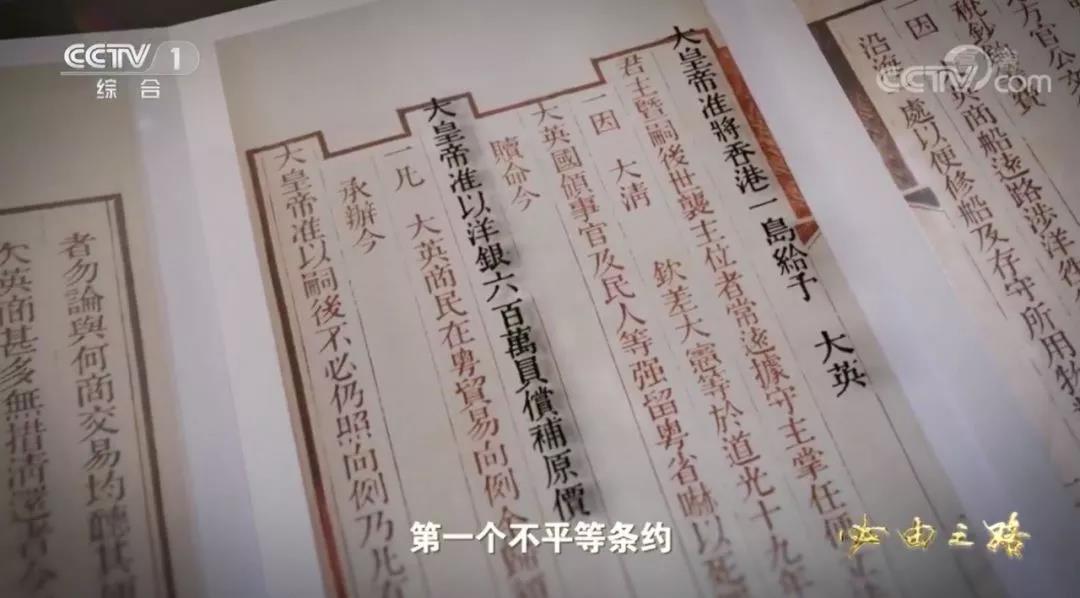 CCTV 1
综合
CCTV com
方官公文
一因 英商船遠路涉洋往
沿海 處以便修船及存守所用物
大皇帝准將香港一島給予 大英
君主暨嗣後世襲主位者常遠據守主掌任便
一因 大清 欽差大憲等於道光十九年
大英國領事官及民人等强留粵省嚇以死
贖命今
大皇帝准以洋銀六百萬員償補原價
一凡 大英商民在粵貿易向例全歸
承辦今
大皇帝准以嗣後不必仍照向例乃凡有
者勿論與何商交易均聽其
欠英商甚多無措清還者今
第一个不平等条约
必由之路